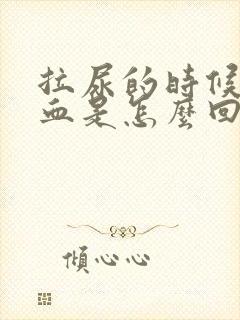 拉尿的時候
血是怎麼回
傾心心